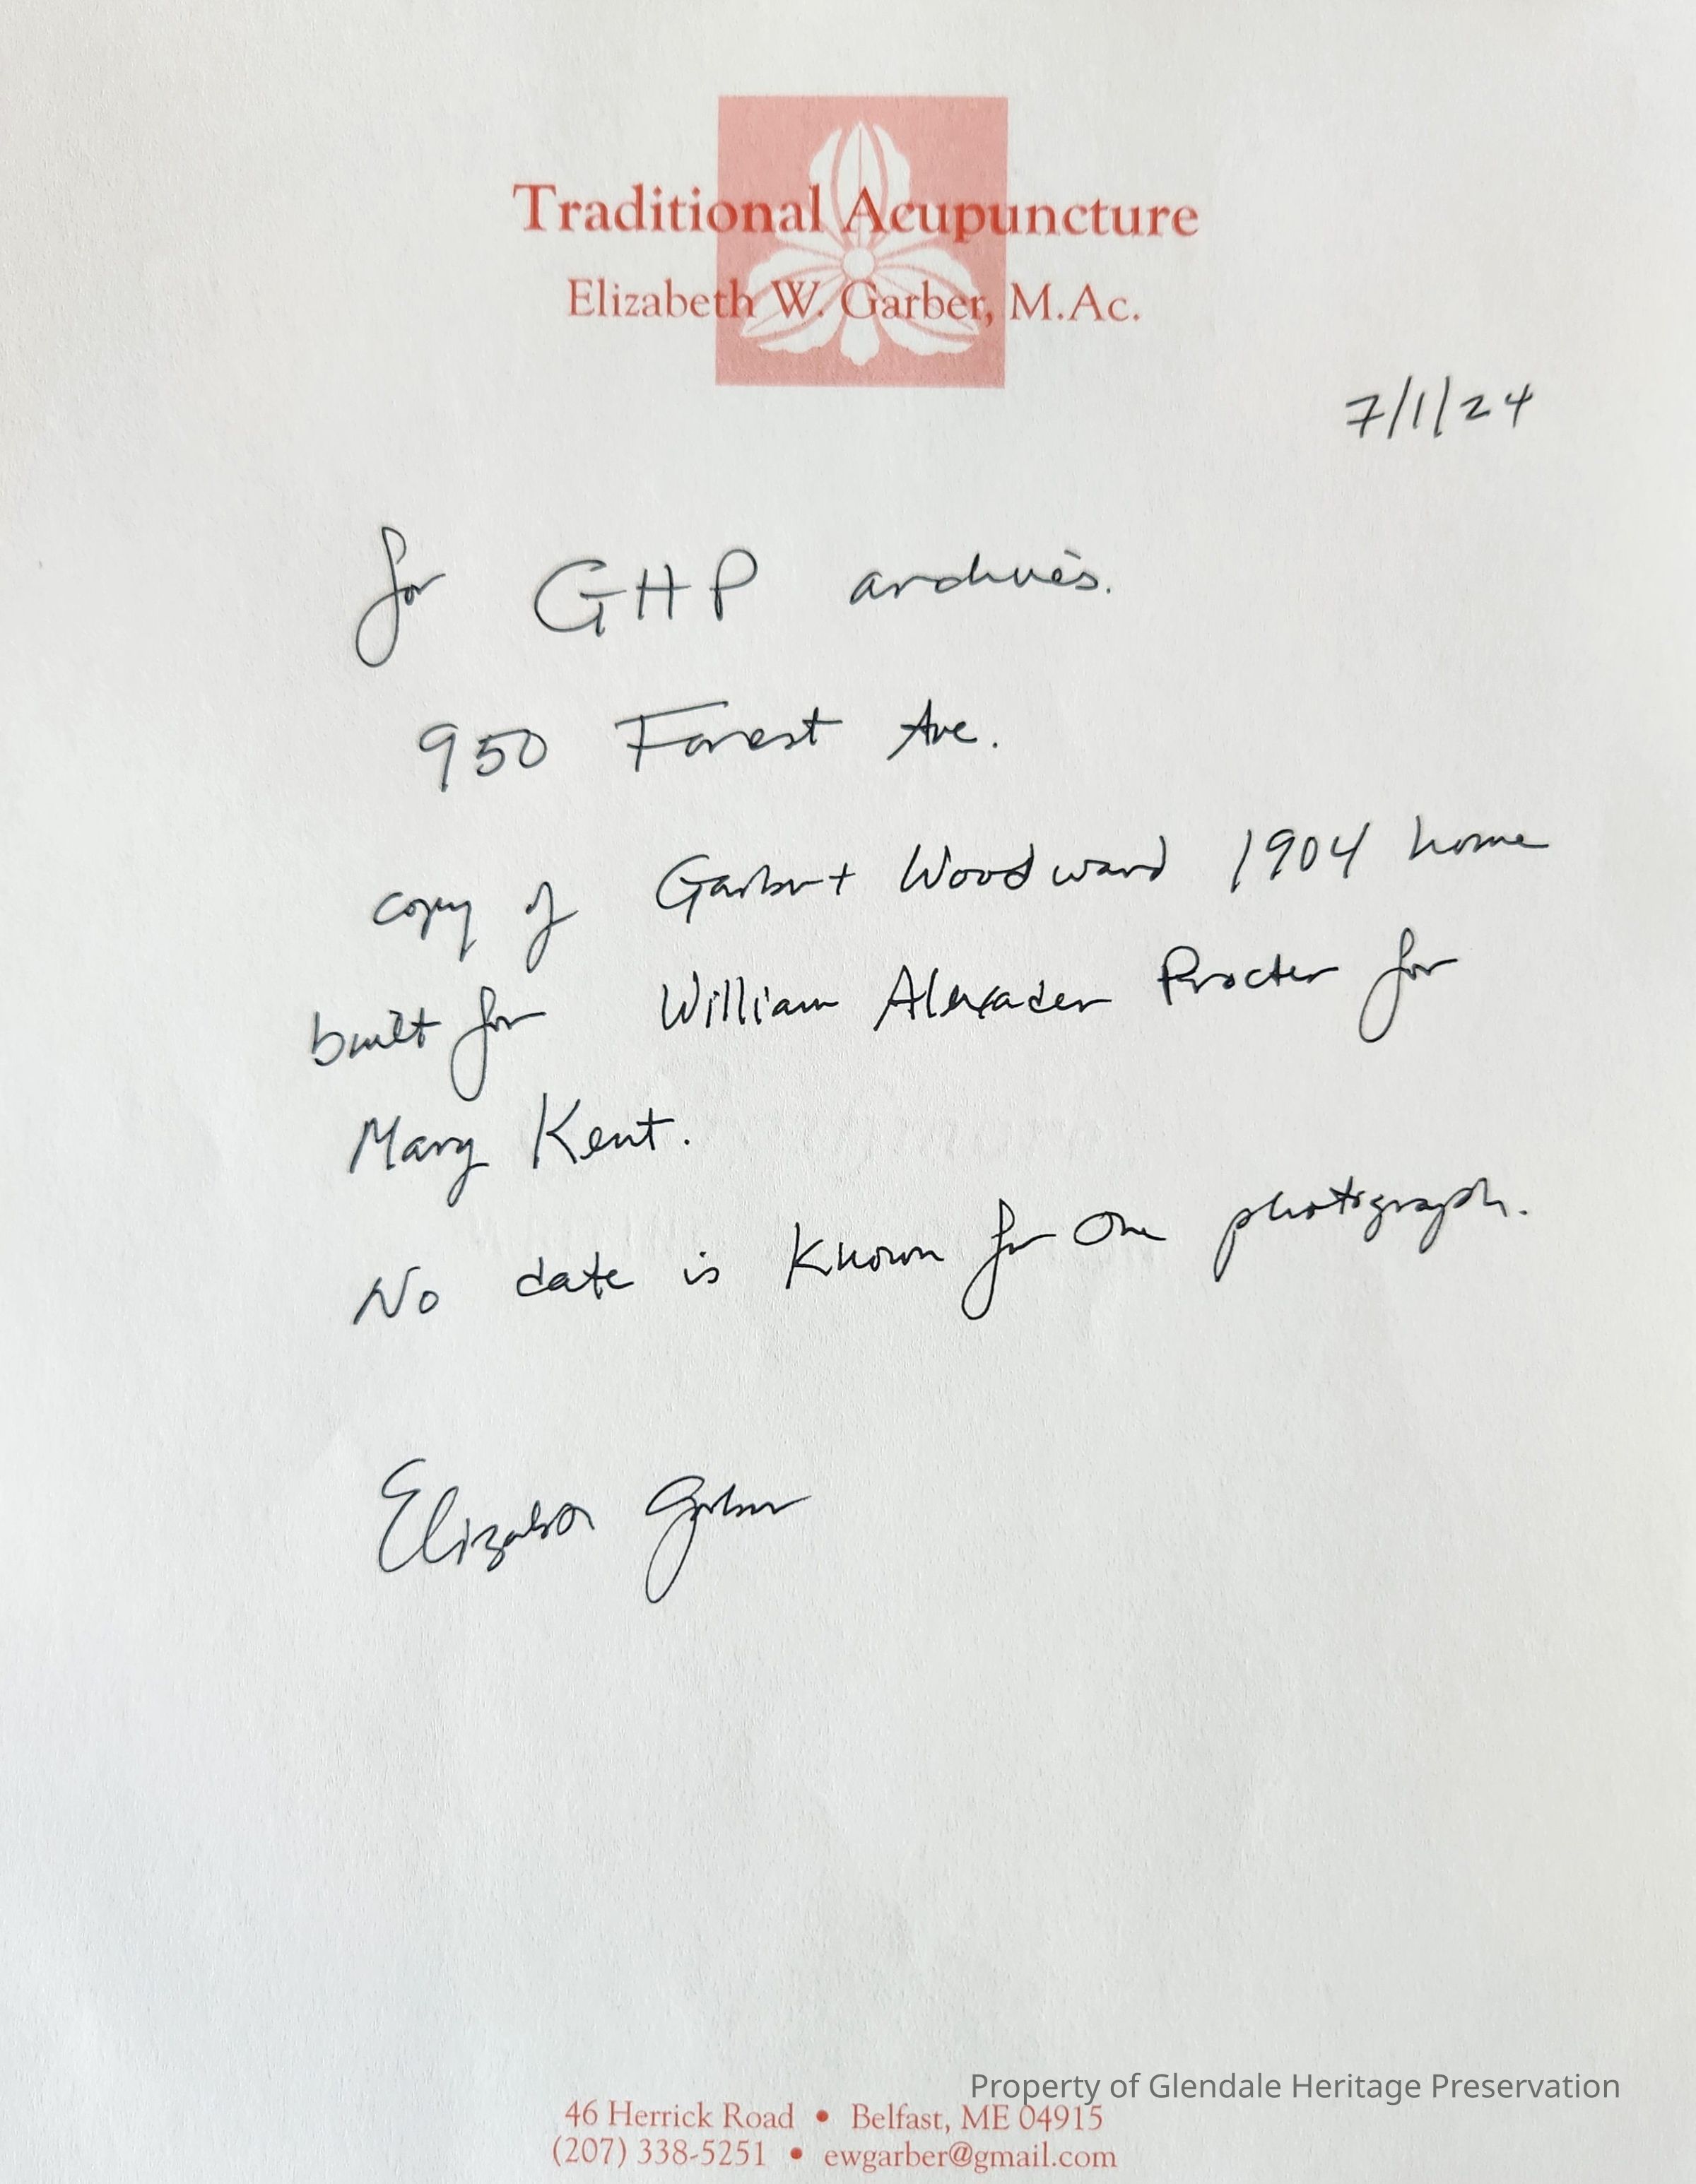 Traditional Acupuncture
Elizabeth W. Garber, M.Ac.
7/1/24
for GHP archives.
950 Forest Ave.
copy of Garber + Woodward 1904 home
built for William Alexader Procter for
Mary Kent.
No date is known for one photograph.
Elizabeth Garber
Property of Glendale Heritage Preservation
46 Herrick Road • Belfast, ME 04915
(207) 338-5251 • ewgarber@gmail.com